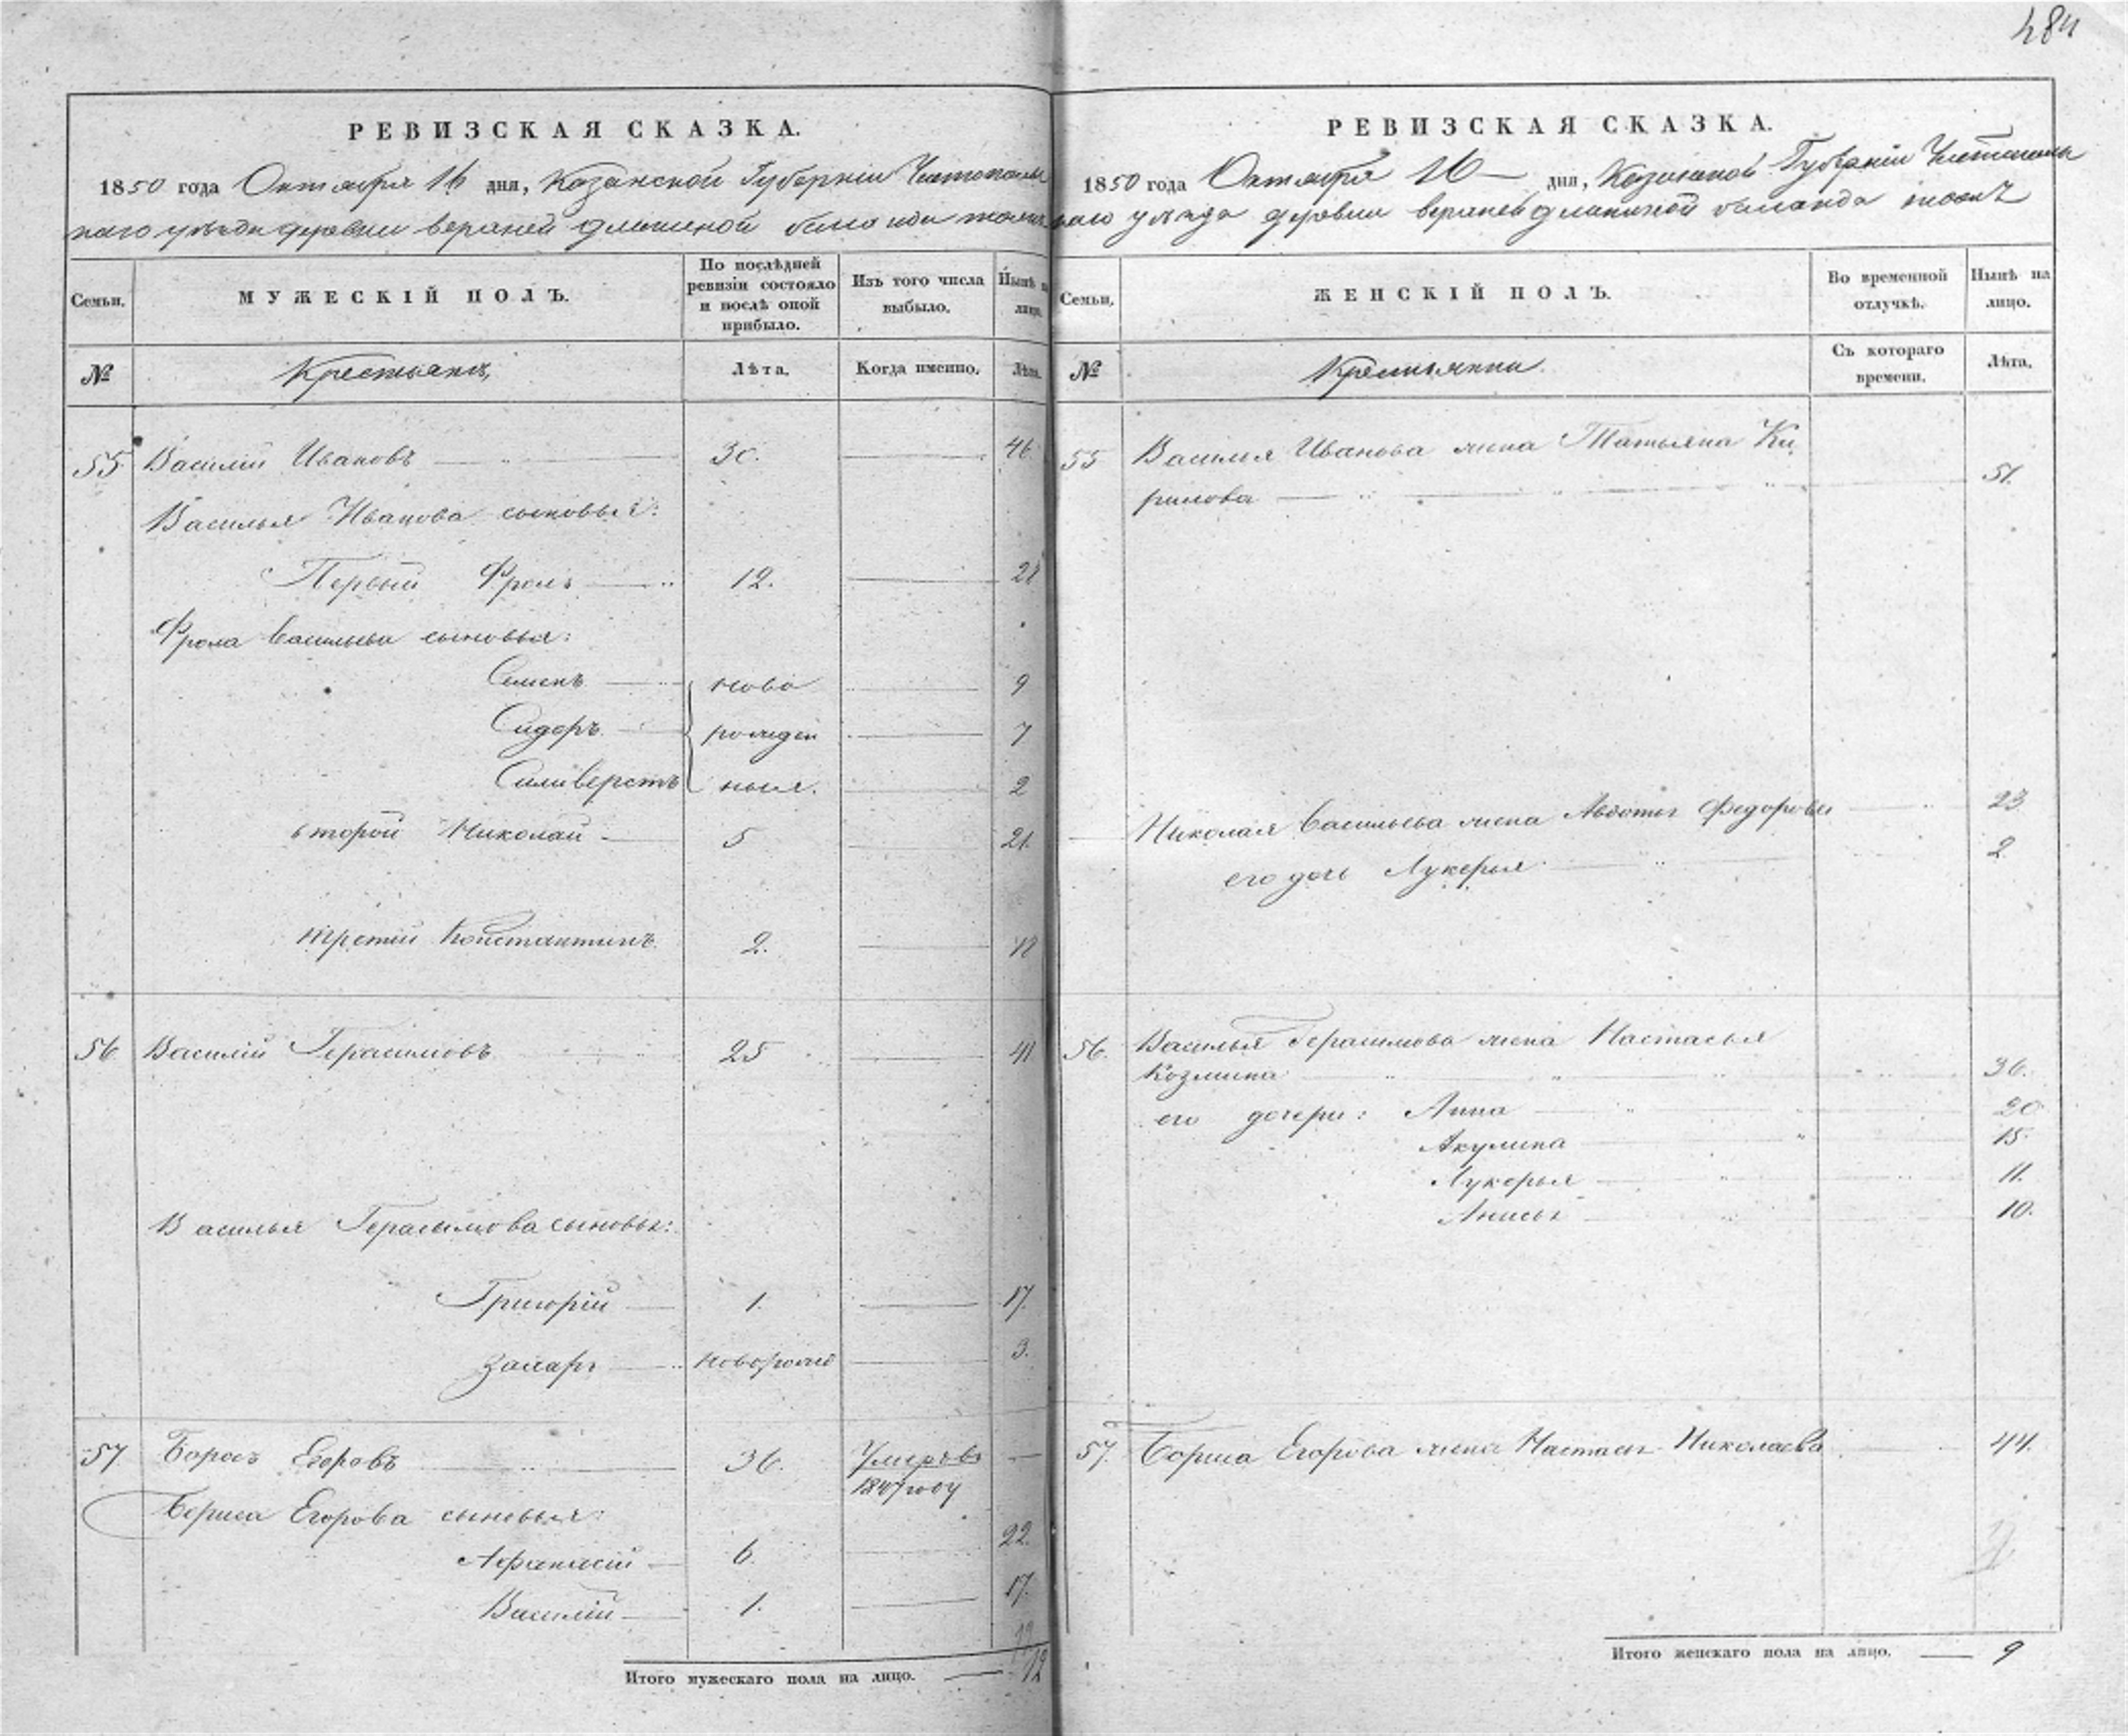 484
РЕВИЗСКАЯ СКАЗКА.
1850 года Октября 16 дня, Казанской Губернiи Чистополь
наго уѣзда деревни верхней
Семьи.
МУЖЕСКIЙ ПОЛЪ.
По послѣдней ревизiи состояло и послѣ оной прибыло.
Изъ того числа выбыло.
Нынѣ на лицо.
№
Крестьянъ
Лѣта.
Когда именно.
Лѣта.
55 Василiй Ивановъ 30. 46
Василья Иванова сыновья:
Первый Фролъ 12. 28
Фрола Васильева сыновья:
Семенъ ново 9
Сидоръ рожден 7
Силиверстъ ныя. 2
второй Николай 5 21
третiй Константинъ 2. 18
56 Василiй Герасимовъ 25 41
Василья Герасимова сыновья:
Григорiй 1. 17
Захаръ новорожд 3.
57 Борисъ Егоровъ 36. Умеръ въ
1847 году
Бориса Егорова сыновья:
Афанасiй 6. 22.
Василiй 1. 17.
Итого мужескаго пола на лицо. 12
РЕВИЗСКАЯ СКАЗКА.
1850 года Октября 16 дня, Казанской Губернiи Чистополь
наго уѣзда деревни верхней
Семьи.
ЖЕНСКIЙ ПОЛЪ.
Во временной отлучкѣ.
Нынѣ на лицо.
№
Крестьянки
Съ котораго времени.
Лѣта.
55 Василья Иванова жена Татьяна Ки
рилова 51.
Николая Васильева жена Авдотья Федорова 23
его дочь Лукерья 2
56. Василья Герасимова жена Настасья
Козмина 36.
его дочери: Анна 20
Акулина 15.
Лукерья 11.
Анисья 10.
57. Бориса Егорова жена Настасья Николаева 44.
Итого женскаго пола на лицо. 9